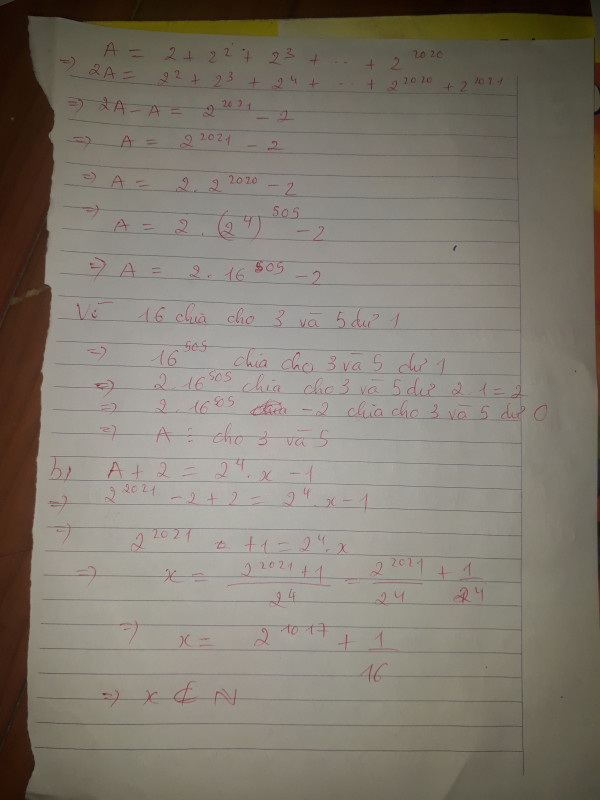 A = 2 + 2² + 2³ + ... + 2²⁰²⁰
=> 2A = 2² + 2³ + 2⁴ + ... + 2²⁰²⁰ + 2²⁰²¹
=> 2A - A = 2²⁰²¹ - 2
=> A = 2²⁰²¹ - 2
=> A = 2 . 2²⁰²⁰ - 2
=> A = 2 . (2⁴)⁵⁰⁵ - 2
=> A = 2 . 16⁵⁰⁵ - 2
Vì 16 chia cho 3 và 5 dư 1
=> 16⁵⁰⁵ chia cho 3 và 5 dư 1
=> 2.16⁵⁰⁵ chia cho 3 và 5 dư 2.1 = 2
=> 2.16⁵⁰⁵ - 2 chia cho 3 và 5 dư 0
=> A ⋮ cho 3 và 5
b, A + 2 = 2⁴ . x - 1
=> 2²⁰²¹ - 2 + 2 = 2⁴ . x - 1
=> 2²⁰²¹ + 1 = 2⁴ . x
=> x = (2²⁰²¹ + 1)/2⁴ = 2²⁰²¹/2⁴ + 1/2⁴
=> x = 2¹⁰¹⁷ + 1/16
=> x ∉ N